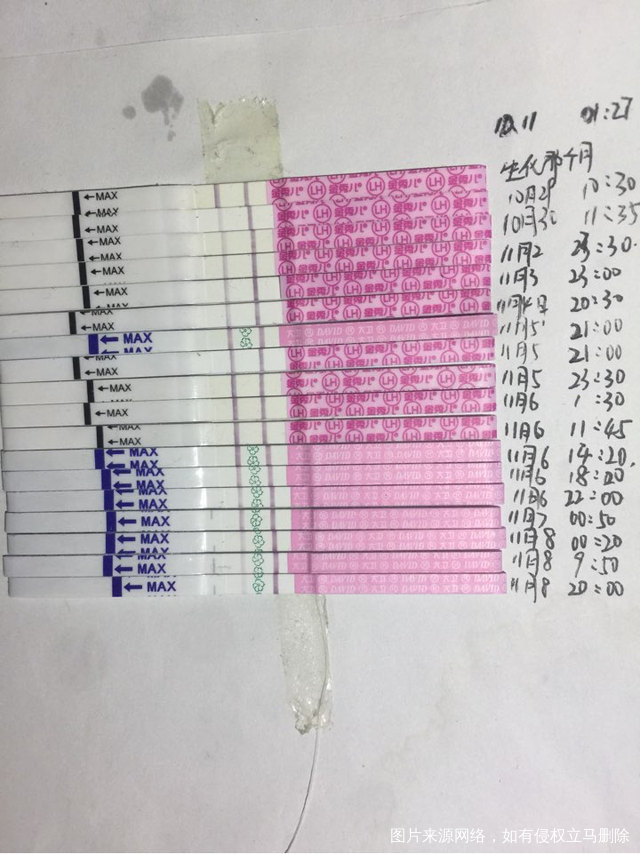 10.11 01:27
生化那个月
10月29 10:30
10月30 11:35
11月2 23:30
11月3 23:00
11月4日 20:30
11月5 21:00
11月5 21:00
11月5 23:30
11月6 1:30
11月6 11:45
11月6 14:20
11月6 18:20
11月6 22:00
11月7 00:50
11月8 00:20
11月8 9:50
11月8 20:00
←MAX LH 金秀儿®
←MAX
←MAX
←MAX
←MAX
←MAX
←MAX
←MAX
←MAX 大卫 DAVID
←MAX
←MAX
←MAX
←MAX
←MAX
←MAX
←MAX
←MAX
←MAX
←MAX
←MAX
←MAX
图片来源网络，如有侵权立马删除